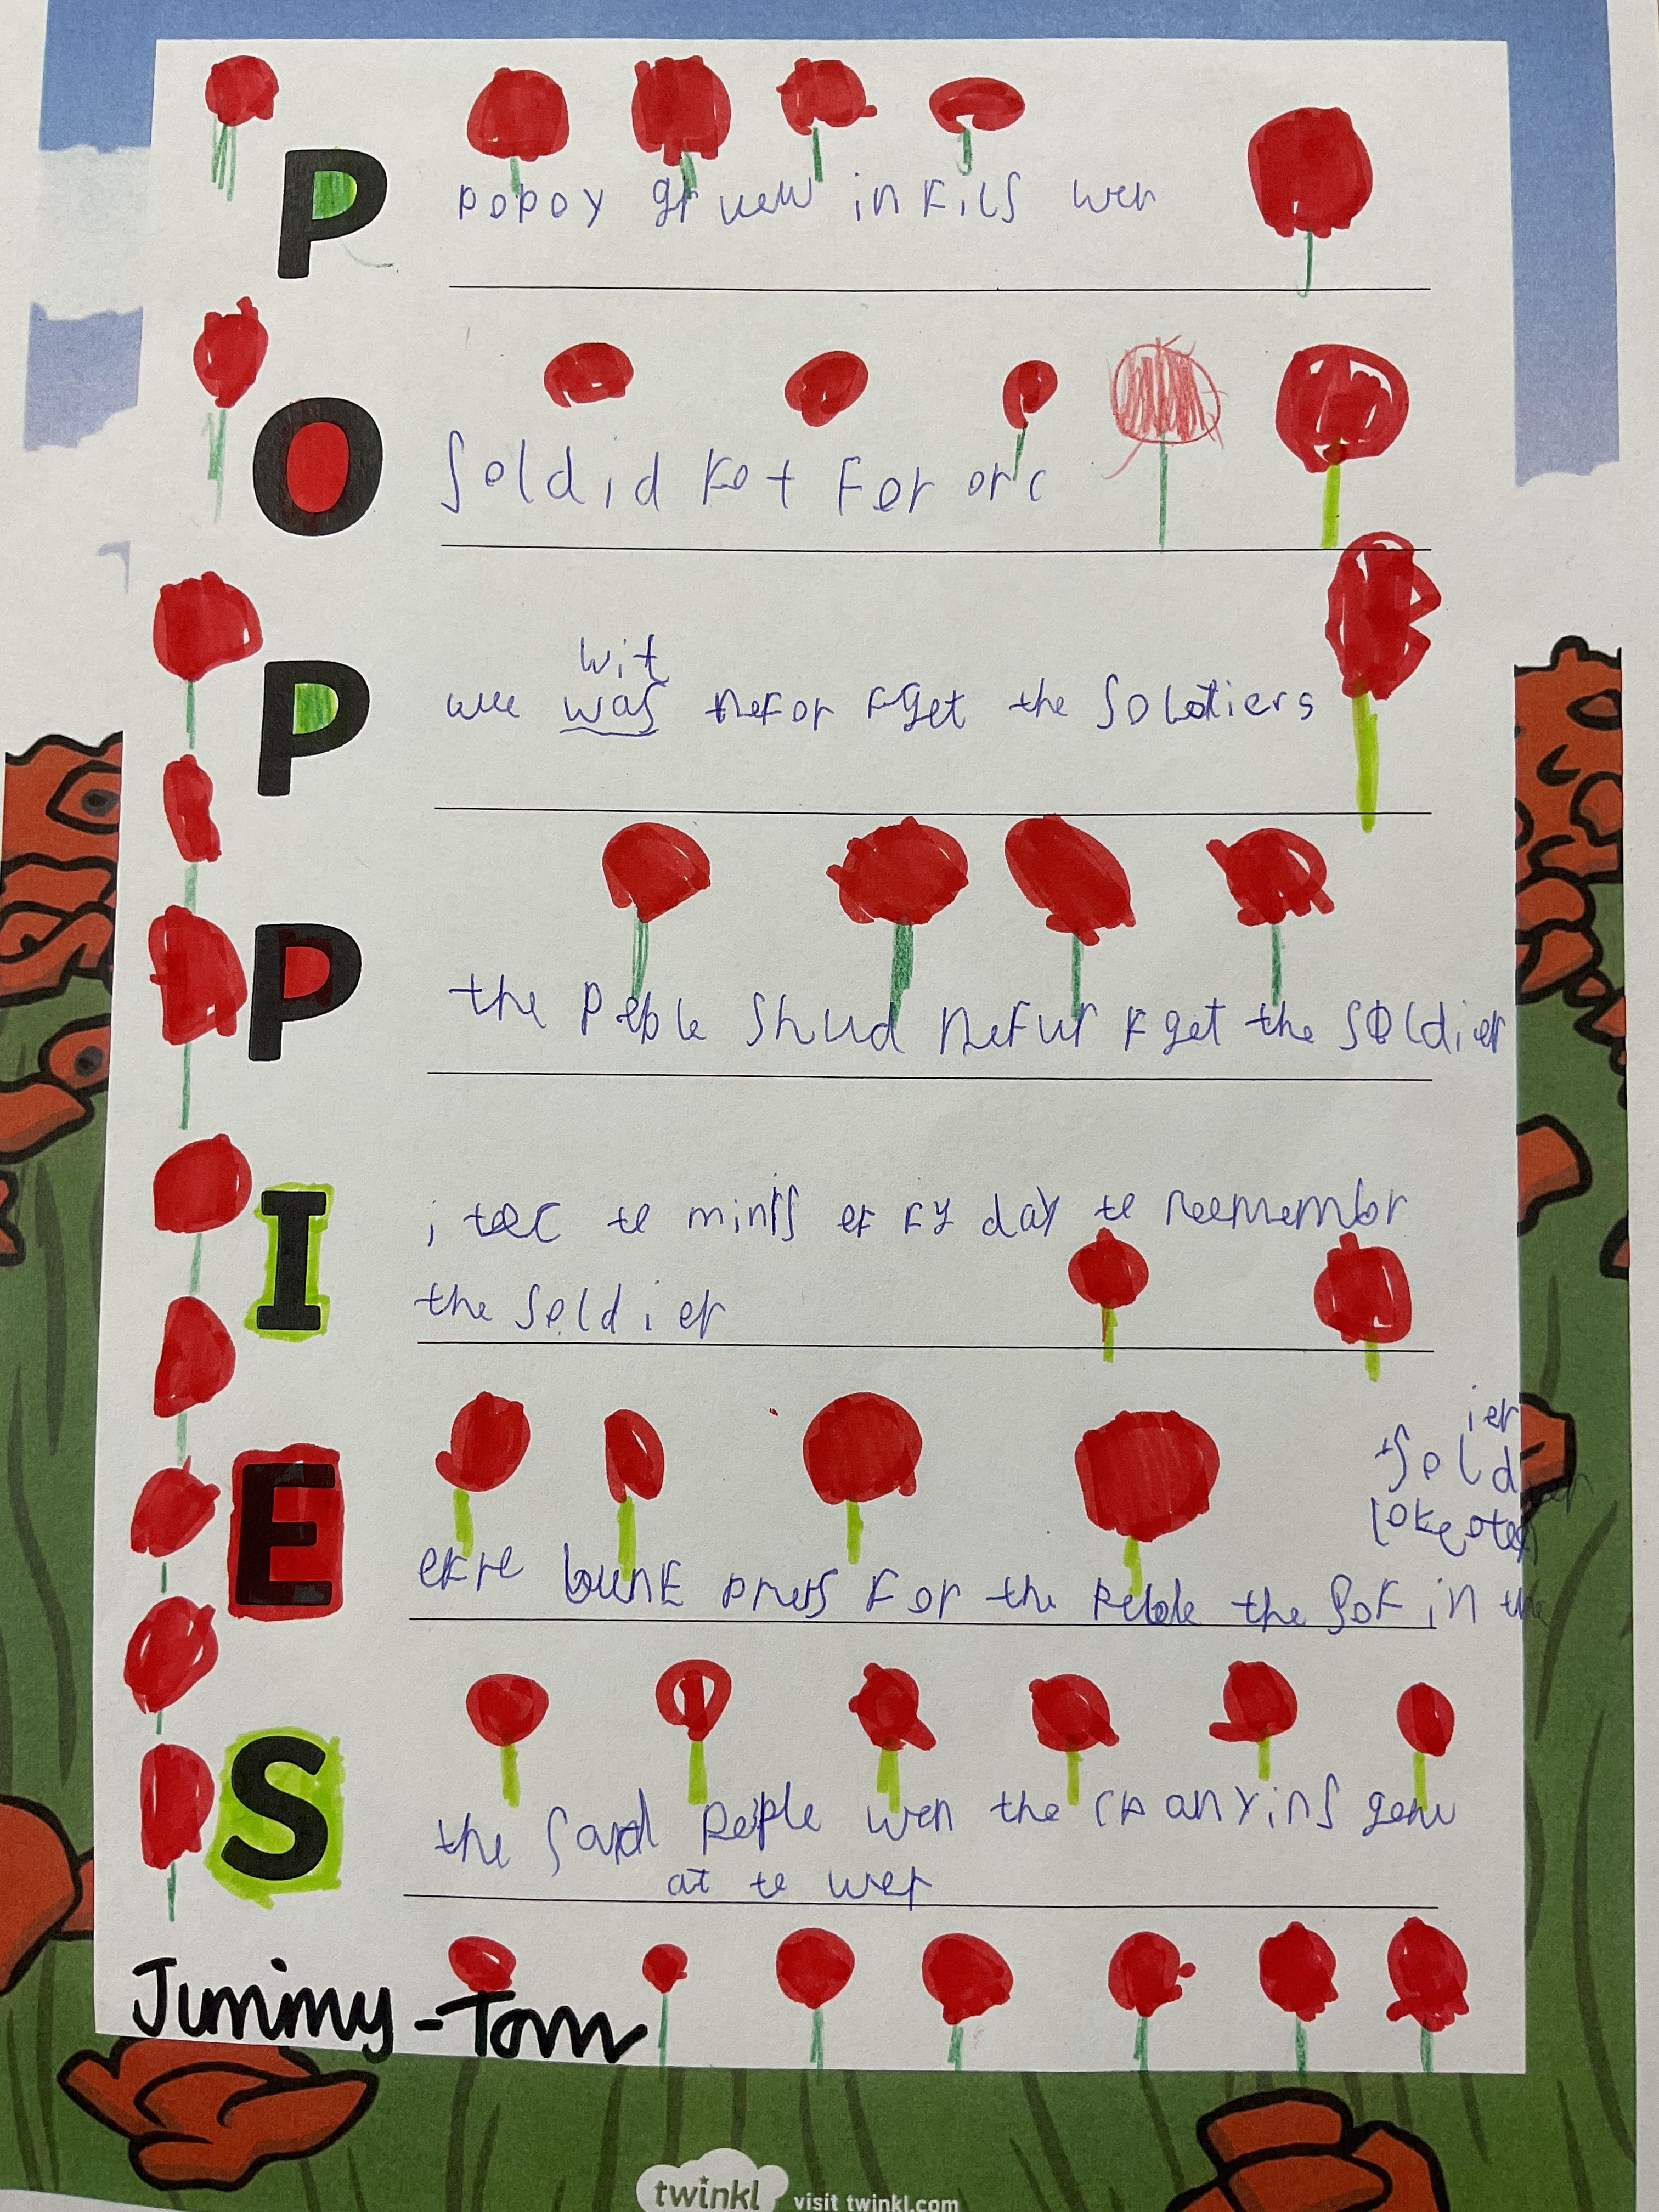 P
popoy gruew in Fils wer
O
Soldid Fot For orc
wit
P
wee was neFor Fget the Soldiers
P
the people Shud neFur Fget the Soldier
I
i tec te mints eF Fy day te reemembr
the Soldier
ier
Sold
E
eFre bunE press For the the SoF in the
S
the Sand people wen the gene
at te wer
Jummy-Tom
twinkl visit twinkl.com